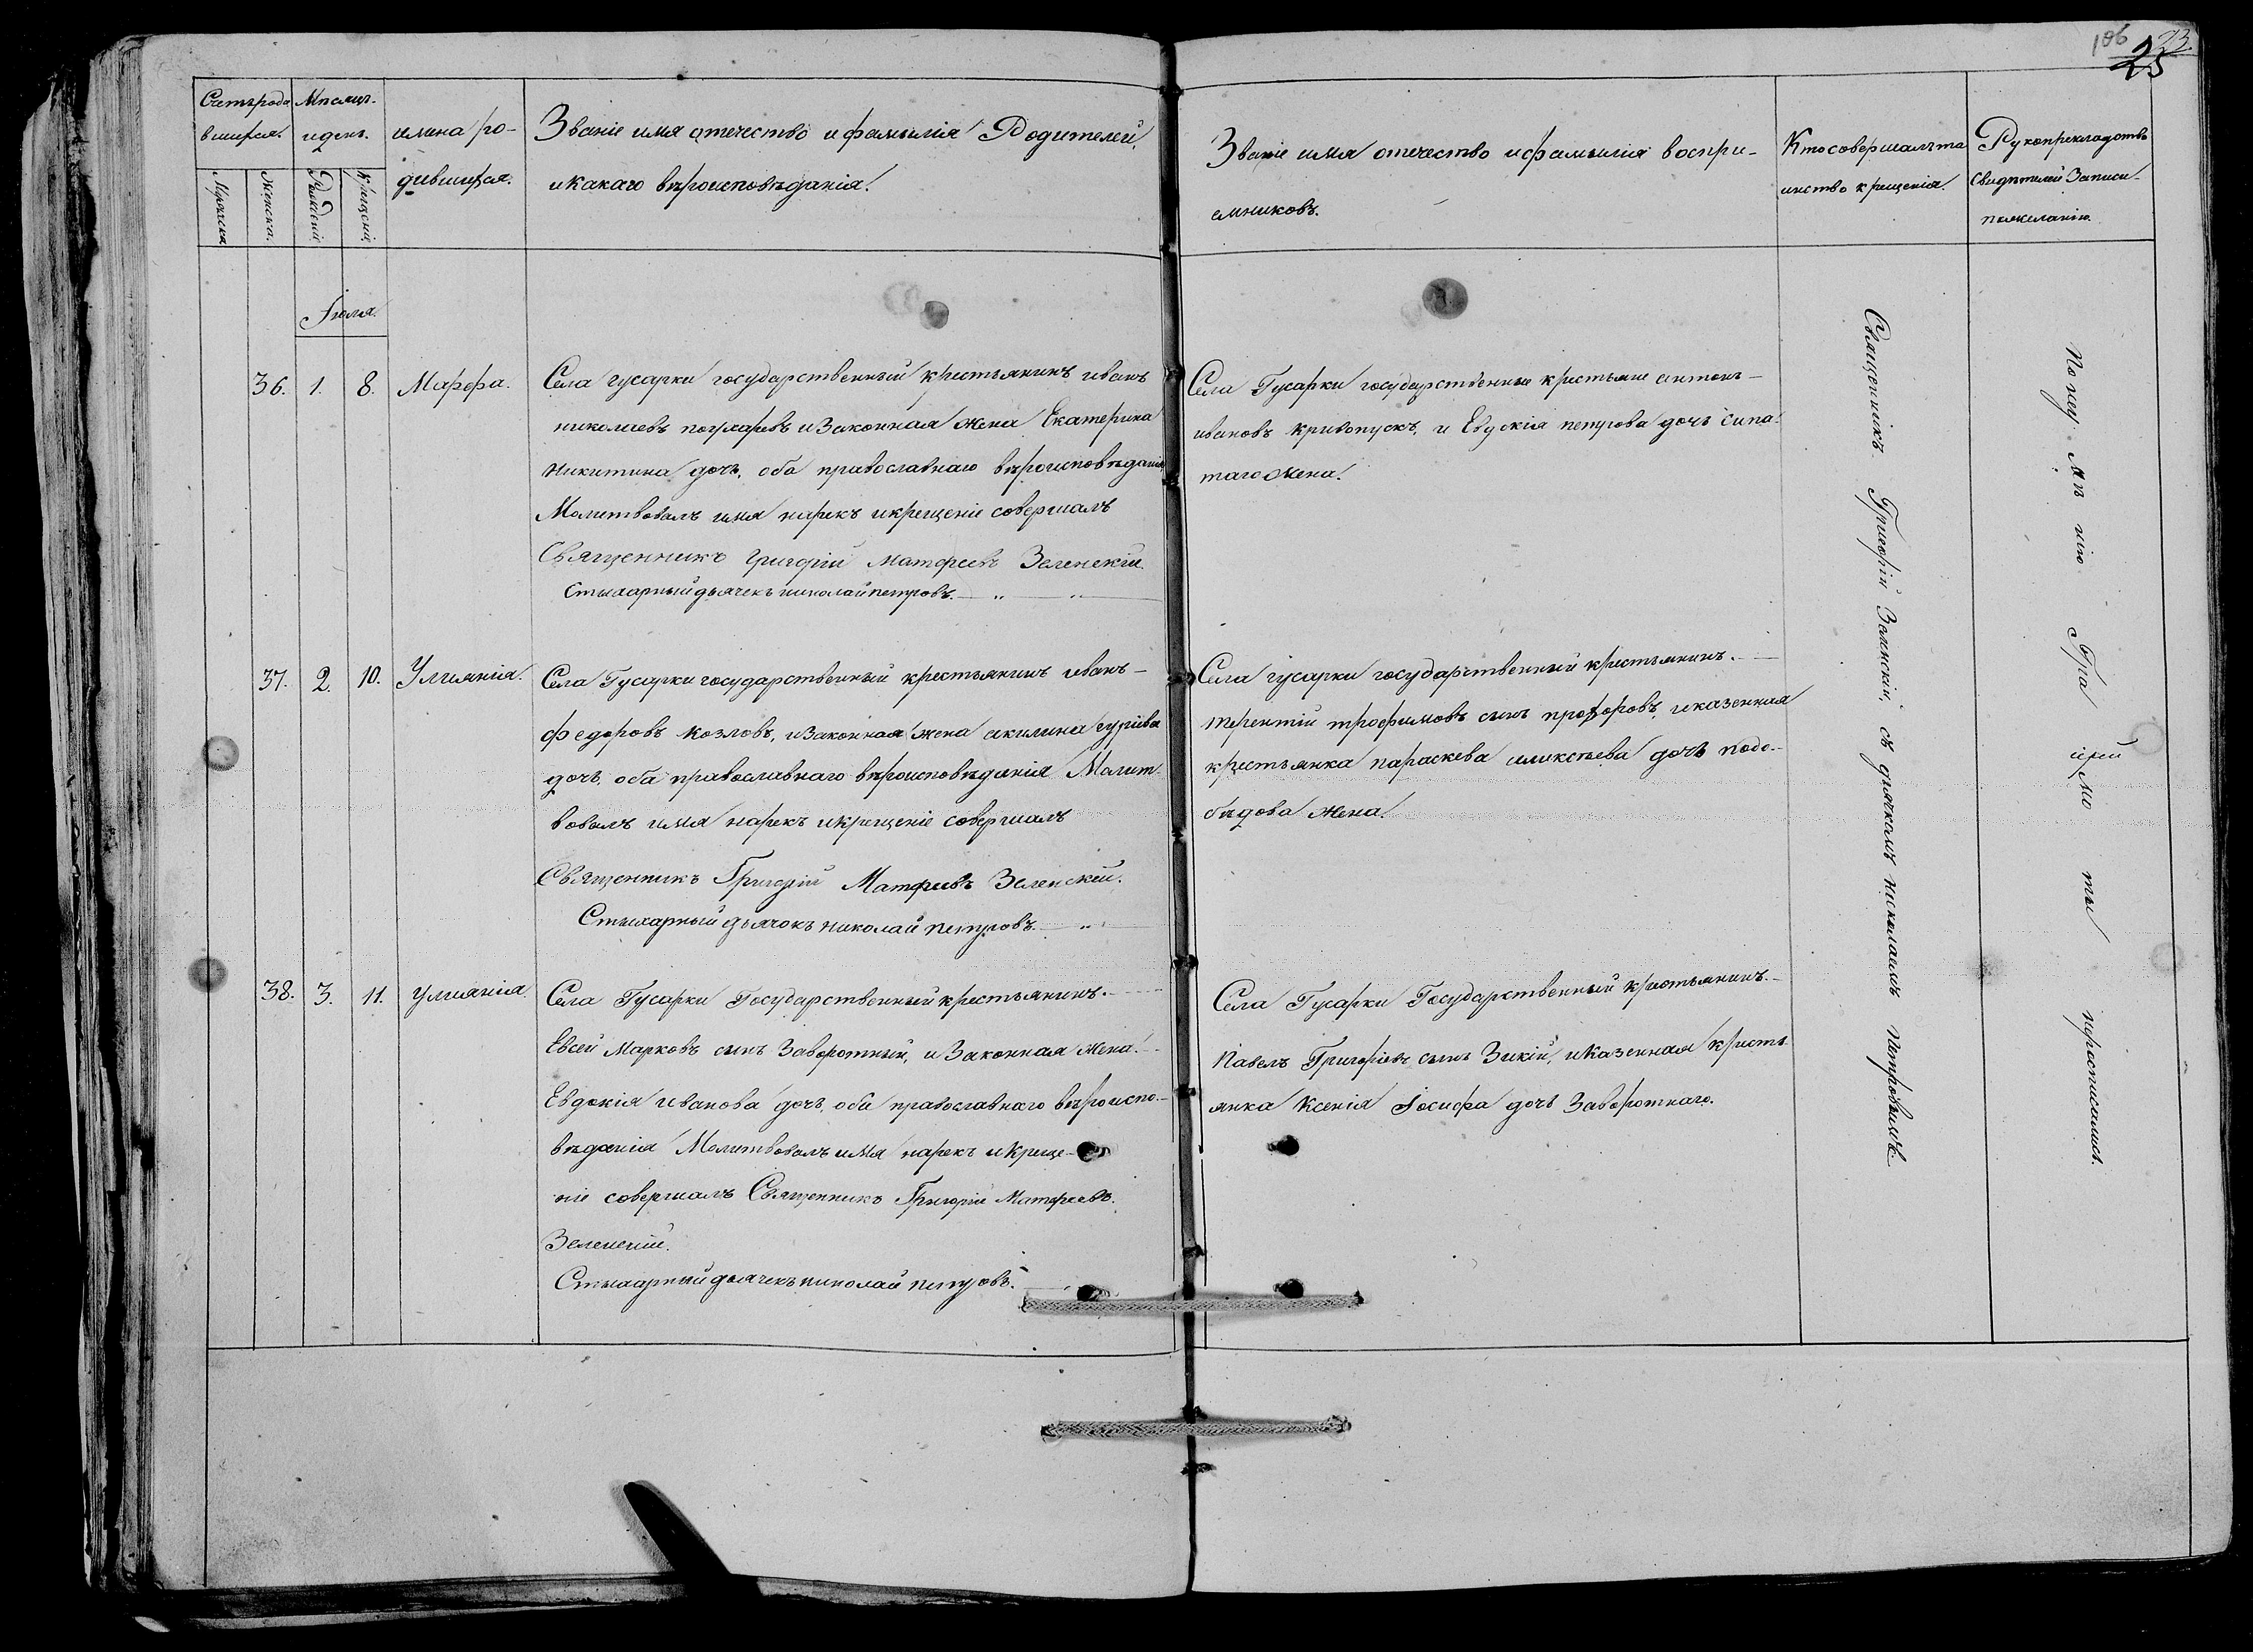 106 23.
25
Счетъ рода
вшихся.
Мѣсяцъ
и день.
имена ро-
дившихся.
Званіе имя отечество и фамилія Родителей,
и какаго вѣроисповѣданія.
Мужеска
Женска.
Рожденія
Крещенія
Званіе имя отечество и фамилія воспри-
емниковъ.
Кто совершалъ та
инство крещенія.
Рукоприкладство
Свидѣтелей Записи
по желанію.
Іюля.
36. 1. 8. Марфа.
Села гусарки государственный крестьянинъ иванъ
николаевъ и Законная жена Екатерина
Никитина дочь, оба православнаго вѣроисповѣданія
Молитвовалъ имя нарекъ и крещеніе совершалъ
Священникъ Григорій Матфеевъ Зеленскій.
Стихарный дьячекъ николай петровъ.
Села Гусарки государственные крестьяне антонъ
ивановъ кривопускъ, и Евдокія петрова дочь
жена.
37. 2. 10. Улиянія.
Села Гусарки государственный крестьянинъ иванъ
федоровъ козловъ, и Законная жена акилина гуріева
дочь, оба православнаго вѣроисповѣданія Молит
вовалъ имя нарекъ и крещеніе совершалъ
Священникъ Григорій Матфеевъ Зеленскій.
Стихарный дьячокъ николай петровъ.
Села гусарки государственный крестьянинъ.
терентій трофимовъ сынъ прохоровъ, и казенная
крестьянка параскева алексѣева дочь подо-
бѣдова жена.
38. 3. 11. Улиянія.
Села Гусарки Государственный крестьянинъ.
Евсей Марковъ сынъ Заворотный, и Законная жена
Евдокія иванова дочь, оба православнаго вѣроиспо-
вѣданія Молитвовалъ имя нарекъ и креще-
ніе совершалъ Священникъ Григорій Матфеевъ.
Зеленскій.
Стихарный дьячекъ николай петровъ.
Села Гусарки Государственный крестьянинъ.
Павелъ Григорьевъ сынъ Зикій, и Казенная кресть
янка Ксенія Іосифа дочь Заворотнаго.
Священникъ Григорій Зеленскій, съ дьячкомъ николаемъ Петровымъ
По неу мѣ нію Гра мо ты неросписались.